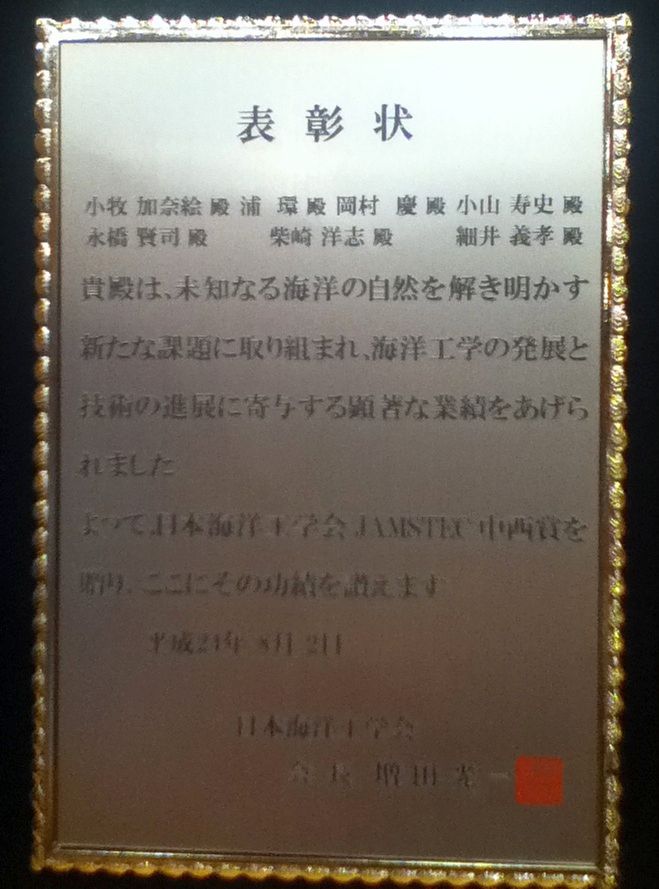 表彰状
小牧 加奈絵 殿 浦 環 殿 岡村 慶 殿 小山 寿史 殿
永橋 賢司 殿 柴崎 洋志 殿 細井 義孝 殿
貴殿は、未知なる海洋の自然を解き明かす
新たな課題に取り組まれ、海洋工学の発展と
技術の進展に寄与する顕著な業績をあげら
れました
よって、日本海洋工学会 JAMSTEC 中西賞を
贈り、ここにその功績を讃えます
平成21年 8月 2日
日本海洋工学会
会長 増田 光一